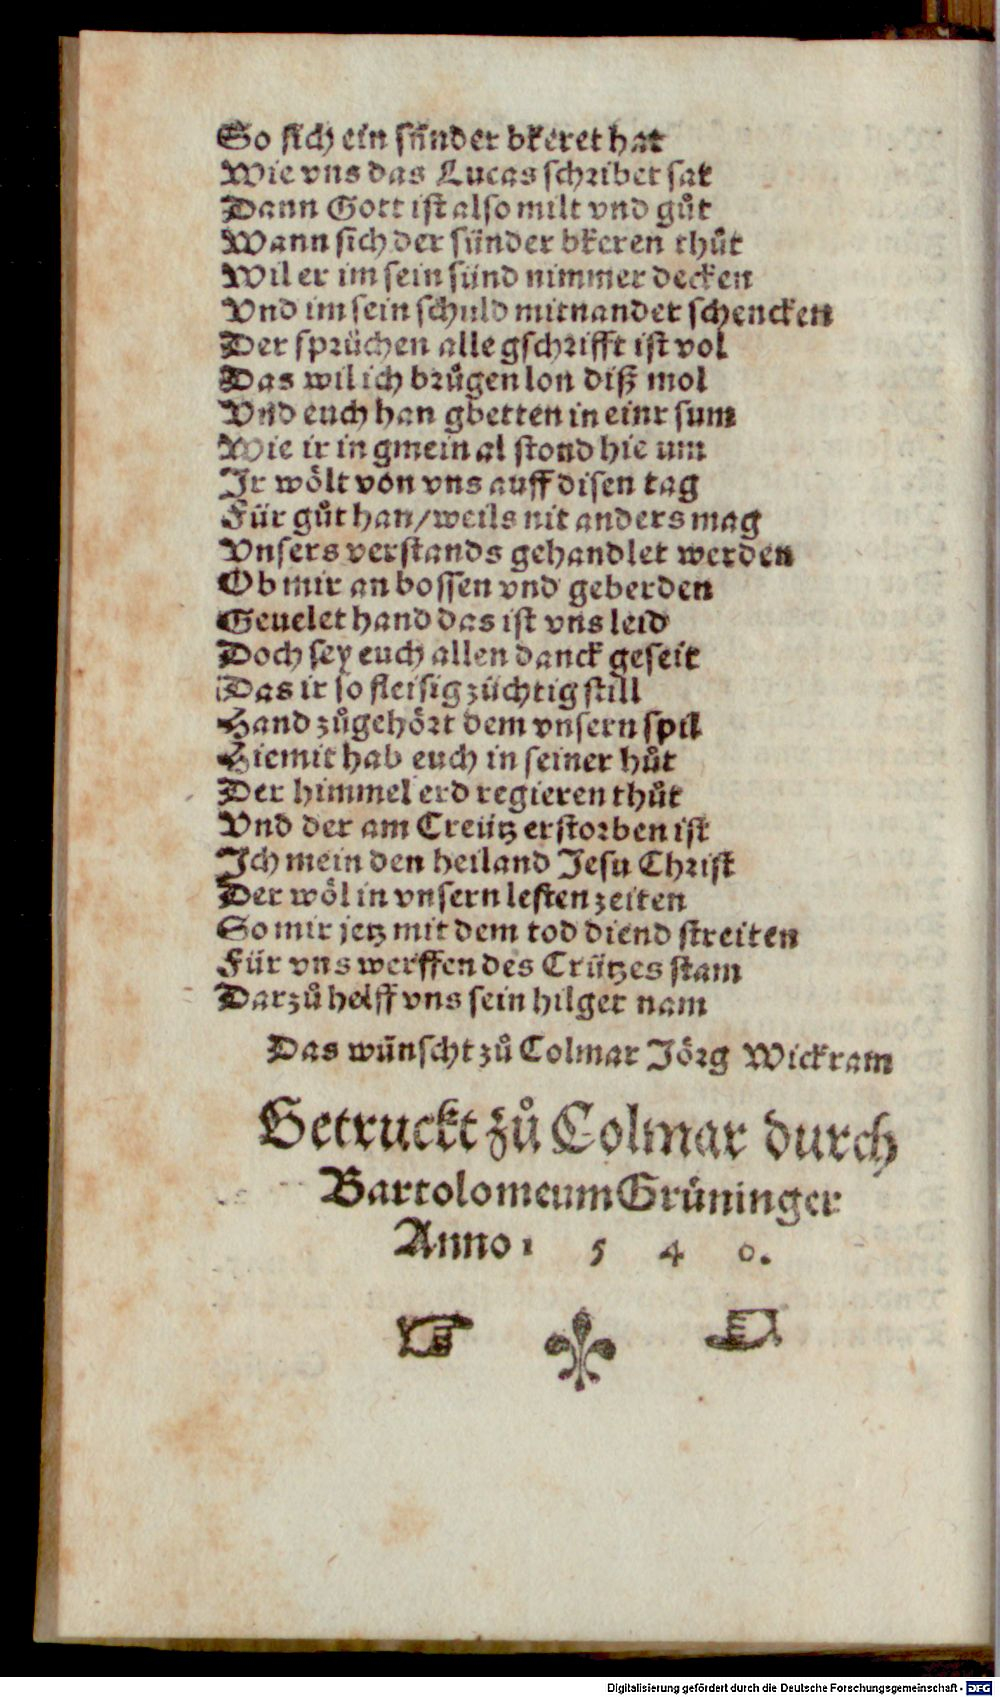 So sich ein sünder bkeret hat
Wie vns das Lucas schribet sat
Dann Gott ist also milt vnd gůt
Wann sich der sünder bkeren thůt
Wil er im sein sünd nimmer decken
Vnd im sein schuld mitnander schencken
Der sprüchen alle gschrifft ist vol
Das wil ich brůgen lon diß mol
Vnd euch han gbetten in einr sum
Wie ir in gmein al stond hie um
Ir wölt von vns auff disen tag
Für gůt han/weils nit anders mag
Vnsers verstands gehandlet werden
Ob mir an bossen vnd geberden
Gevelet hand das ist vns leid
Doch sey euch allen danck geseit
Das ir so fleisig züchtig still
Hand zůgehört dem vnsern spil
Hiemit hab euch in seiner hůt
Der himmel erd regieren thůt
Vnd der am Creütz erstorben ist
Ich mein den heiland Jesu Christ
Der wöl in vnsern lesten zeiten
So mir jetz mit dem tod diend streiten
Für vns werffen des Crützes stam
Darzů helff vns sein hilger nam
Das wünscht zů Colmar Jörg Wickram
Getruckt zů Colmar durch
Bartolomeum Grüninger
Anno 1 5 4 0.
Digitalisierung gefördert durch die Deutsche Forschungsgemeinschaft - DFG